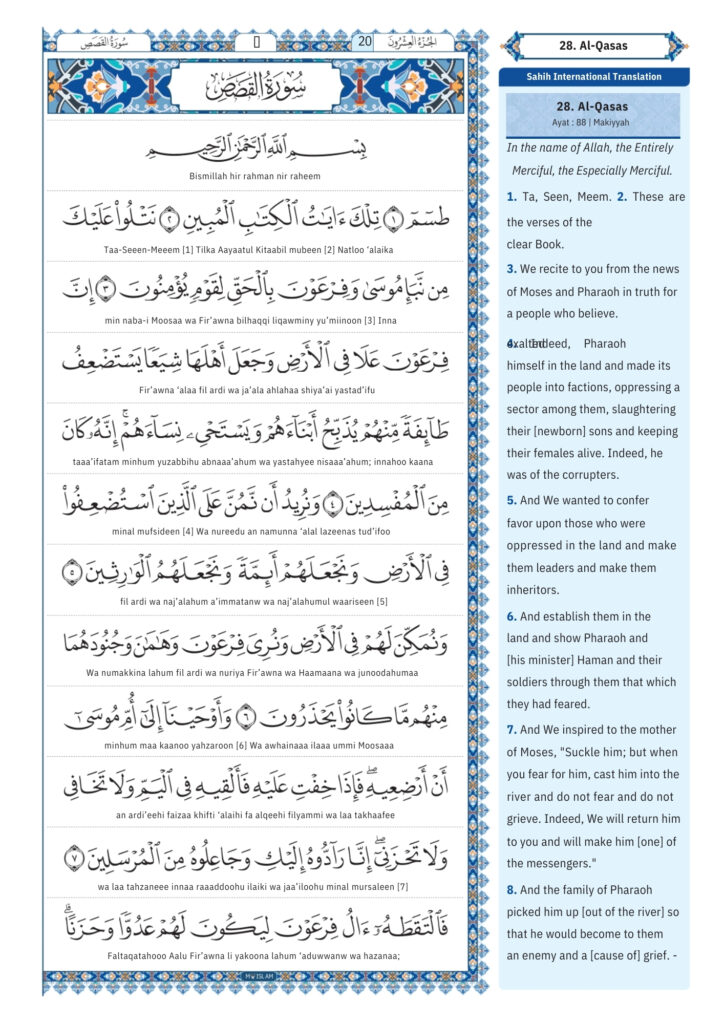 سُورَةُ القَصَصِ
20
الجُزْءُ العِشْرُونَ
سُورَةُ القَصَصِ
بِسْمِ ٱللَّهِ ٱلرَّحْمَٰنِ ٱلرَّحِيمِ
Bismillah hir rahman nir raheem
طسٓمٓ ١ تِلْكَ ءَايَٰتُ ٱلْكِتَٰبِ ٱلْمُبِينِ ٢ نَتْلُوا۟ عَلَيْكَ
Taa-Seeen-Meeem [1] Tilka Aayaatul Kitaabil mubeen [2] Natloo ‘alaika
مِن نَّبَإِ مُوسَىٰ وَفِرْعَوْنَ بِٱلْحَقِّ لِقَوْمٍ يُؤْمِنُونَ ٣ إِنَّ
min naba-i Moosaa wa Fir’awna bilhaqqi liqawminy yu’miinoon [3] Inna
فِرْعَوْنَ عَلَا فِى ٱلْأَرْضِ وَجَعَلَ أَهْلَهَا شِيَعًا يَسْتَضْعِفُ
Fir’awna ‘alaa fil ardi wa ja’ala ahlahaa shiya’ai yastad’ifu
طَآئِفَةً مِّنْهُمْ يُذَبِّحُ أَبْنَآءَهُمْ وَيَسْتَحْىِۦ نِسَآءَهُمْ ۚ إِنَّهُۥ كَانَ
taaa’ifatam minhum yuzabbihu abnaaa’ahum wa yastahyee nisaaa’ahum; innahoo kaana
مِنَ ٱلْمُفْسِدِينَ ٤ وَنُرِيدُ أَن نَّمُنَّ عَلَى ٱلَّذِينَ ٱسْتُضْعِفُوا۟
minal mufsideen [4] Wa nureedu an namunna ‘alal lazeenas tud’ifoo
فِى ٱلْأَرْضِ وَنَجْعَلَهُمْ أَئِمَّةً وَنَجْعَلَهُمُ ٱلْوَٰرِثِينَ ٥
fil ardi wa naj’alahum a’immatanw wa naj’alahumul waariseen [5]
وَنُمَكِّنَ لَهُمْ فِى ٱلْأَرْضِ وَنُرِىَ فِرْعَوْنَ وَهَٰمَٰنَ وَجُنُودَهُمَا
Wa numakkina lahum fil ardi wa nuriya Fir’awna wa Haamaana wa junoodahumaa
مِنْهُم مَّا كَانُوا۟ يَحْذَرُونَ ٦ وَأَوْحَيْنَآ إِلَىٰٓ أُمِّ مُوسَىٰٓ
minhum maa kaanoo yahzaroon [6] Wa awhainaaa ilaaa ummi Moosaaa
أَنْ أَرْضِعِيهِ ۖ فَإِذَا خِفْتِ عَلَيْهِ فَأَلْقِيهِ فِى ٱلْيَمِّ وَلَا تَخَافِى
an ardi’eehi faizaa khifti ‘alaihi fa alqeehi filyammi wa laa takhaafee
وَلَا تَحْزَنِىٓ ۖ إِنَّا رَآدُّوهُ إِلَيْكِ وَجَاعِلُوهُ مِنَ ٱلْمُرْسَلِينَ ٧
wa laa tahzaneee innaa raaaddoohu ilaiki wa jaa’iloohu minal mursaleen [7]
فَٱلْتَقَطَهُۥٓ ءَالُ فِرْعَوْنَ لِيَكُونَ لَهُمْ عَدُوًّا وَحَزَنًا ۗ
Faltaqatahooo Aalu Fir’awna li yakoona lahum ‘aduwwanw wa hazanaa;
MW ISLAM
28. Al-Qasas
Sahih International Translation
28. Al-Qasas
Ayat : 88 | Makiyyah
In the name of Allah, the Entirely
Merciful, the Especially Merciful.
1. Ta, Seen, Meem. 2. These are
the verses of the
clear Book.
3. We recite to you from the news
of Moses and Pharaoh in truth for
a people who believe.
4. Indeed, Pharaoh exalted
himself in the land and made its
people into factions, oppressing a
sector among them, slaughtering
their [newborn] sons and keeping
their females alive. Indeed, he
was of the corrupters.
5. And We wanted to confer
favor upon those who were
oppressed in the land and make
them leaders and make them
inheritors.
6. And establish them in the
land and show Pharaoh and
[his minister] Haman and their
soldiers through them that which
they had feared.
7. And We inspired to the mother
of Moses, "Suckle him; but when
you fear for him, cast him into the
river and do not fear and do not
grieve. Indeed, We will return him
to you and will make him [one] of
the messengers."
8. And the family of Pharaoh
picked him up [out of the river] so
that he would become to them
an enemy and a [cause of] grief. -